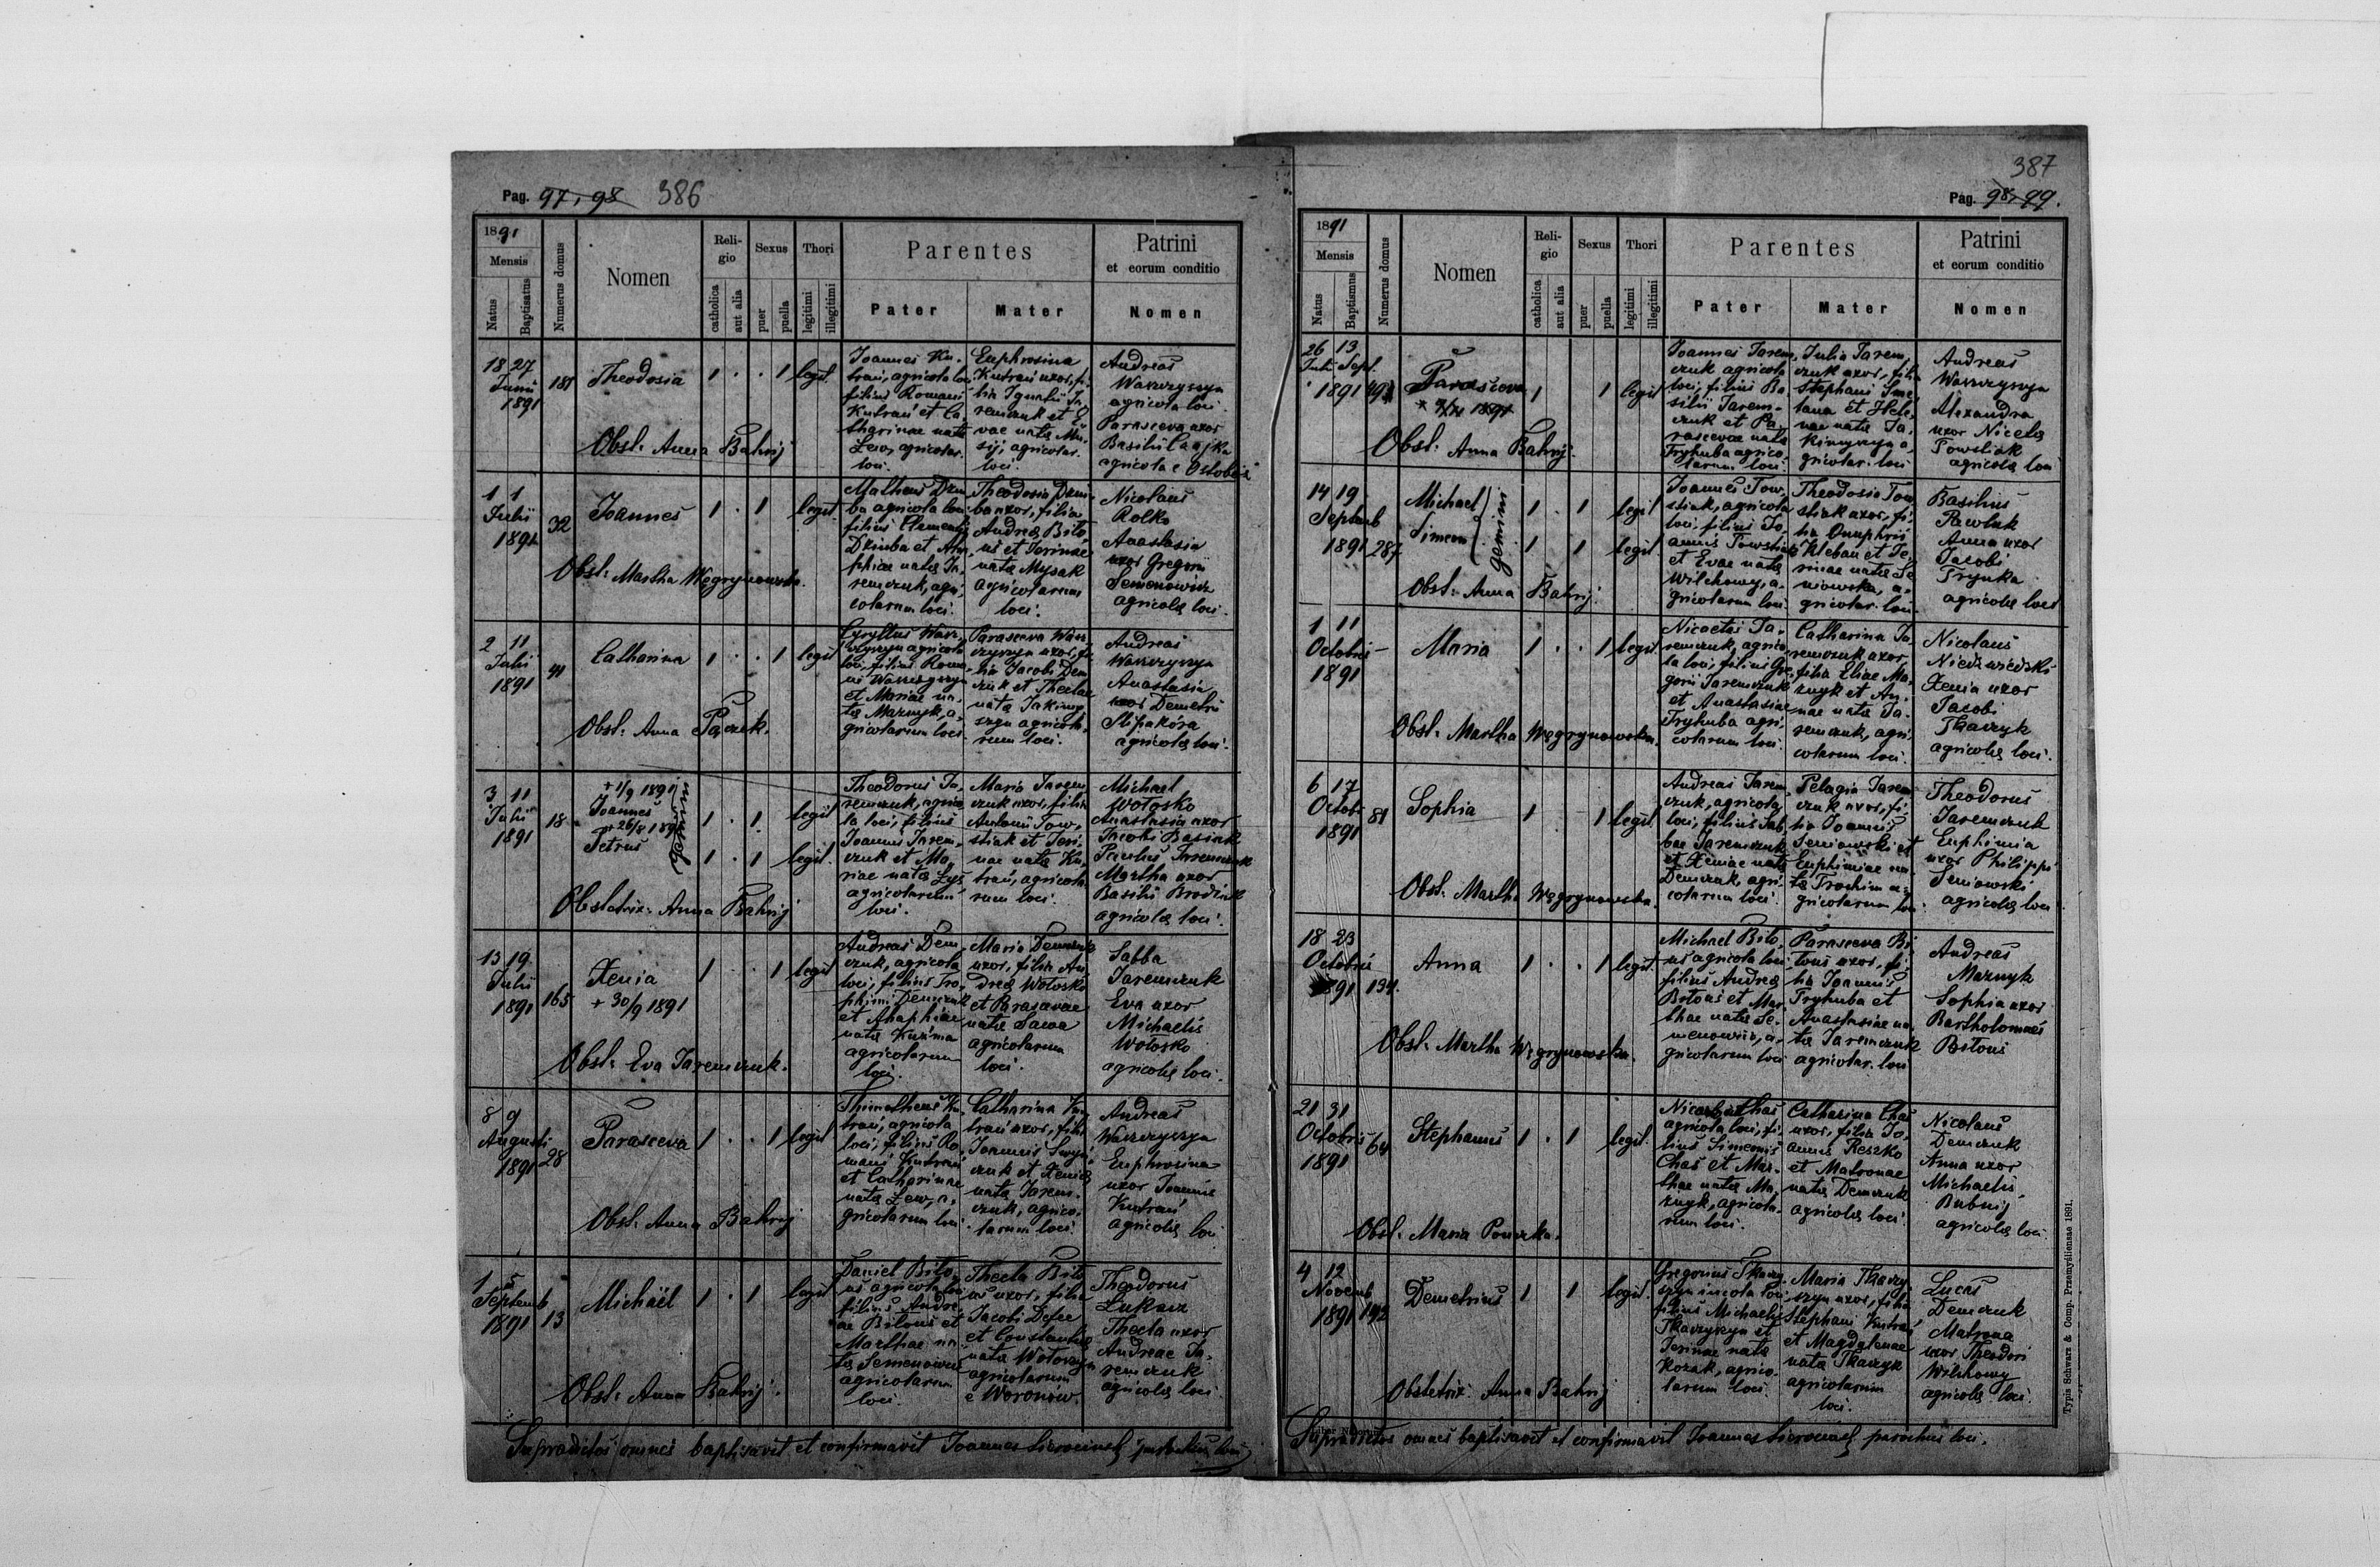 Pag. 97, 98 386
1891
Mensis
Natus
Baptisatus
Numerus domus
Nomen
Reli-
gio
catholica
aut alia
Sexus
puer
puella
Thori
legitimi
illegitimi
Parentes
Pater
Mater
Patrini
et eorum conditio
Nomen
18 27
Junii
1891
181
Theodosia
1 . . 1 legit.
Joannes Ku-
trań, agricola loci
filius Romani
Kutrań et Ca-
tharinae natae
Lew, agricolar.
loci.
Euphrosina
Kutrań uxor, fi-
lia Ignatii Ja-
remczuk et E-
vae natae Mu-
sij, agricolar.
loci.
Andreas
Wawrzyszyn
agricola loci.
Parasceva uxor
Basilii
agricola e
Obst. Anna Bahrij
1 1
Julii
1891
32
Joannes
1 . 1 legit.
Matheus Dziu-
ba agricola loci
filius Clementis
Dziuba et Aha-
phiae natae Ja-
remczuk, agri-
colarum loci.
Theodosia Dziu-
ba uxor, filia
Andreae Biło-
uś et Jerinae
natae Mysak
agricolarum
loci.
Nicolaus
Rolko
Anastasia
uxor Gregorii
Semenowicz
agricolae loci.
Obst. Martha Węgrynowska.
2 11
Julii
1891
41
Catharina
1 . . 1 legit
Cyryllus Wawr-
zyszyn agricola
loci, filius Roma-
ni Wawrzyszyn
et Mariae na-
tae Mazuryk, a-
gricolarum loci.
Parasceva Wawr-
zyszyn uxor, fi-
lia Jacobi Dem-
czuk et Theclae
natae Jakimy-
szyn agricola-
rum loci.
Andreas
Wawrzyszyn
Anastasia
uxor Demetrii
agricolae loci.
Obst. Anna
3 11
Julii
1891
18
+ 1/9 1891
Joannes
+ 26/8 1891
Petrus
gemini
1 . 1 legit
1 . 1 legit.
Theodorus Ja-
remczuk, agrico-
la loci, filius
Joannis Jarem-
czuk et Ma-
riae natae Łyś
agricolarum
loci.
Maria Jarem-
czuk uxor, filia
Antonii Tow-
stiak et Jeri-
nae natae Ku-
trań, agricola-
rum loci.
Michael
Wołosko
Anastasia uxor
Jacobi Basiuk
Paulus Jaremczuk
Martha uxor
Basilii
agricolae loci.
Obstetrix. Anna Bahrij
13 19
Julii
1891
165
Xenia
+ 30/9 1891
1 . . 1 legit
Andreas Dem-
czuk, agricola
loci, filius Tro-
phimi Demczuk
et Ahaphiae
natae Kuźma
agricolarum
loci.
Maria Demczuk
uxor, filia An-
dreae Wołosko
et Parascevae
natae Sawa
agricolarum
loci.
Sabba
Jaremczuk
Eva uxor
Michaelis
Wołosko
agricolae loci.
Obst. Eva Jaremczuk.
8 9
Augusti
1891
28
Parasceva
1 . . 1 legit
Thimotheus Ku-
trań, agricola
loci, filius Ro-
mani Kutrań
et Catharinae
natae Lew, a-
gricolarum loci
Catharina Ku-
trań uxor, filia
Joannis
czuk et Xeniae
natae Jarem-
czuk, agrico-
larum loci
Andreas
Wawrzyszyn
Euphrosina
uxor Joannis
Kutrań
agricolae loci
Obst. Anna Bahrij
1 5
Septemb
1891
13
Michaël
1 . 1 legit
Daniel Biło-
uś agricola loci
filius Andre-
ae Biłouś et
Marthae na-
tae Semenowicz
agricolarum
loci.
Thecla Biło-
uś uxor, filia
Jacobi
et Constantiae
natae Wołoszyn
agricolarum
e Woronow.
Theodorus
Łukasz
Thecla uxor
Andreae Ja-
remczuk
agricolae loci
Obst. Anna Bahrij.
Supradictos omnes baptisavit et confirmavit Joannes parochus loci
387
Pag. 98, 99.
1891
Mensis
Natus
Baptismus
Numerus domus
Nomen
Reli-
gio
catholica
aut alia
Sexus
puer
puella
Thori
legitimi
illegitimi
Parentes
Pater
Mater
Patrini
et eorum conditio
Nomen
26 13
Julii Sept.
1891
Parasceva
1 1 legit
Joannes Jarem-
czuk agricola
loci, filius Ba-
silii Jarem-
czuk et Pa-
rascevae natae
Tryhuba agrico-
larum loci.
Julia Jarem-
czuk uxor, filia
Stephani Sme-
tana et Hele-
nae natae Ja-
kimyszyn a-
gricolar. loci
Andreas
Wawrzyszyn
Alexandra
uxor Nicetae
Towstiak
agricolae loci
Obst. Anna Bahrij.
14 19
Septemb
1891
287
Michael
Simeon
gemini
1 . 1 legit
1 1 legit.
Joannes Tow-
stiak, agricola
loci, filius Jo-
annis Towstiak
et Evae natae
Wilchowy, a-
gricolarum loci
Theodosia Tow-
stiak uxor, fi-
lia Onuphrii
Kleban et Je-
rinae natae Se-
niowska, a-
gricolar. loci.
Basilius
Pawluk
Anna uxor
Jacobi
Trynka
agricolae loci
Obst. Anna Bahrij.
1 11
Octobris
1891
Maria
1 . . 1 legit.
Nicetas Ja-
remczuk, agrico-
la loci, filius Gre-
gorii Jaremczuk
et Anastasiae
Tryhuba agri-
colarum loci.
Catharina Ja-
remczuk uxor,
filia Eliae Ma-
zuryk et An-
nae natae Ja-
remczuk, agri-
colarum loci.
Nicolaus
Niedzwiedzki
Xenia uxor
Jacobi
Tkaczyk
agricolae loci.
Obst. Martha Węgrynowska.
6 17
Octobr
1891
81
Sophia
1 1 legit.
Andreas Jarem-
czuk, agricola
loci, filius Sab-
bae Jaremczuk
et Xeniae natae
Demczuk, agri-
colarum loci.
Pelagia Jarem-
czuk uxor, fi-
lia Joannis
Seniowski et
Euphimiae na-
tae Trochim a-
gricolarum loci.
Theodorus
Jaremczuk
Euphimia
uxor Philippi
Seniowski
agricolae loci
Obst. Martha Węgrynowska.
18 23
Octobris
1891
134.
Anna
1 . . 1 legit.
Michael Biło-
uś agricola loci,
filius Andreae
Biłouś et Mar-
thae natae Se-
menowicz, a-
gricolarum loci
Parasceva Bi-
łouś uxor, fi-
lia Joannis
Tryhuba et
Anastasiae na-
tae Jaremczuk
agricolar. loci
Andreas
Mazuryk
Sophia uxor
Bartholomaei
Biłouś
Obst. Martha Węgrynowska.
21 31
Octobris
1891
64
Stephanus
1 . 1 legit.
Chaś
agricola loci, fi-
lius Simeonis
Chaś et Mar-
thae natae Ma-
zuryk, agricola-
rum loci.
Catharina Chaś
uxor, filia Jo-
annis Reszko
et Matronae
natae Demczuk
agricolae loci.
Nicolaus
Demczuk
Anna uxor
Michaelis
Bubnij
agricolae loci
Obst. Maria
4 12
Novemb
1891
192
Demetrius
1 1 legit.
Gregorius Tkaczy-
szyn incola loci
filius Michaelis
Tkaczyszyn et
Jerinae natae
Kozak, agrico-
larum loci.
Maria Tkaczy-
szyn uxor, filia
Stephani Kutrań
et Magdalenae
natae Tkaczyk
agricolarum
loci.
Lucas
Demczuk
Matrona
uxor Theodori
Wilchowy
agricolae loci.
Obstetrix. Anna Bahrij
Supradictos omnes baptisavit et confirmavit Joannes parochus loci.
Typis Schwarz & Comp. Przemyśliensae 1891.